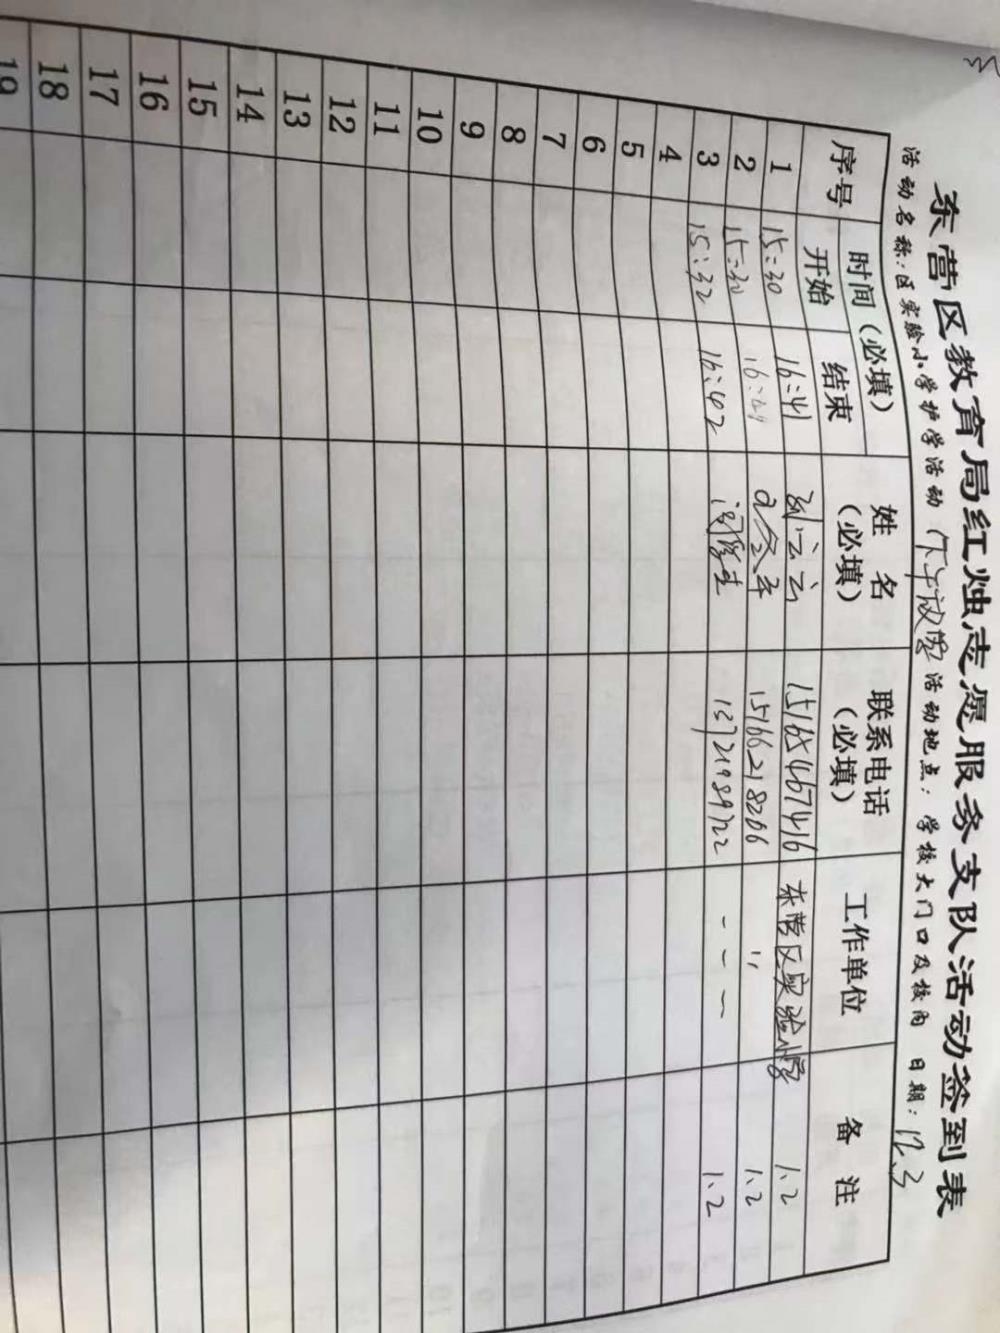 东营区教育局红烛志愿服务支队活动签到表
活动名称:区实验小学护学活动(下午放学) 活动地点:学校大门口及校内 日期:12.3
序号 时间(必填) 姓名(必填) 联系电话(必填) 工作单位 备注
开始 结束
1 15:30 16:41 刘云云 15165467416 东营区实验小学 1.2
2 15:30 15166218266 〃 1.2
3 15:32 16:42 13721989722 - - - 1.2
4
5
6
7
8
9
10
11
12
13
14
15
16
17
18
19